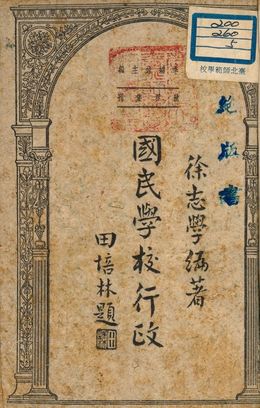 200
260
5
臺北師範學校
絕版書
徐志學編著
國民學校行政
田培林題